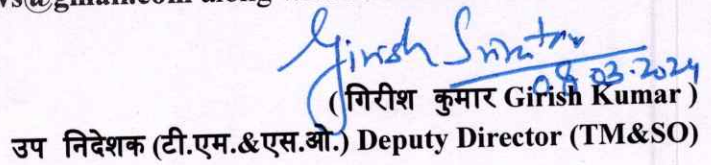 vs@gmail.com along w
Girish
08.03.2024
(गिरीश कुमार Girish Kumar )
उप निदेशक (टी.एम.&एस.ओ.) Deputy Director (TM&SO)